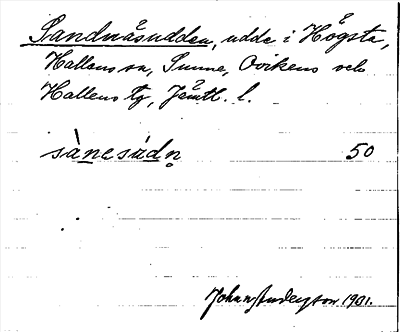 Sandnåsudden, udde i Högsta,
Hallens sn, Sunne, Ovikens och
Hallens tg, Jämtl. l.
sànesúdn̥ 50
Johan Anderson 1901.